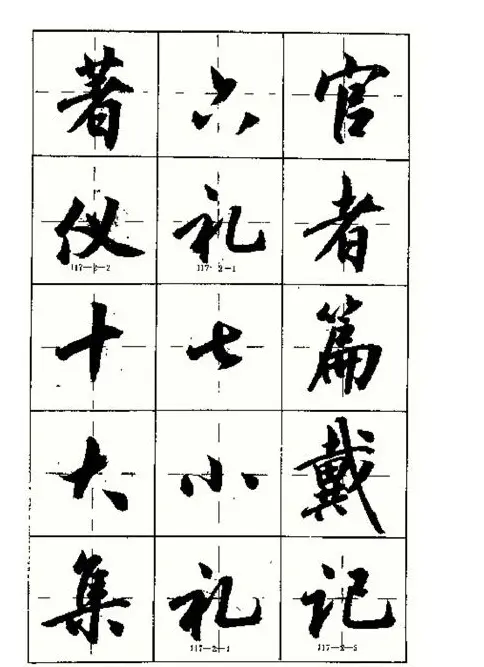 著六官
仪礼者
117—2—2 117—2—1
十七篇
大小戴
集礼记
117—2—1